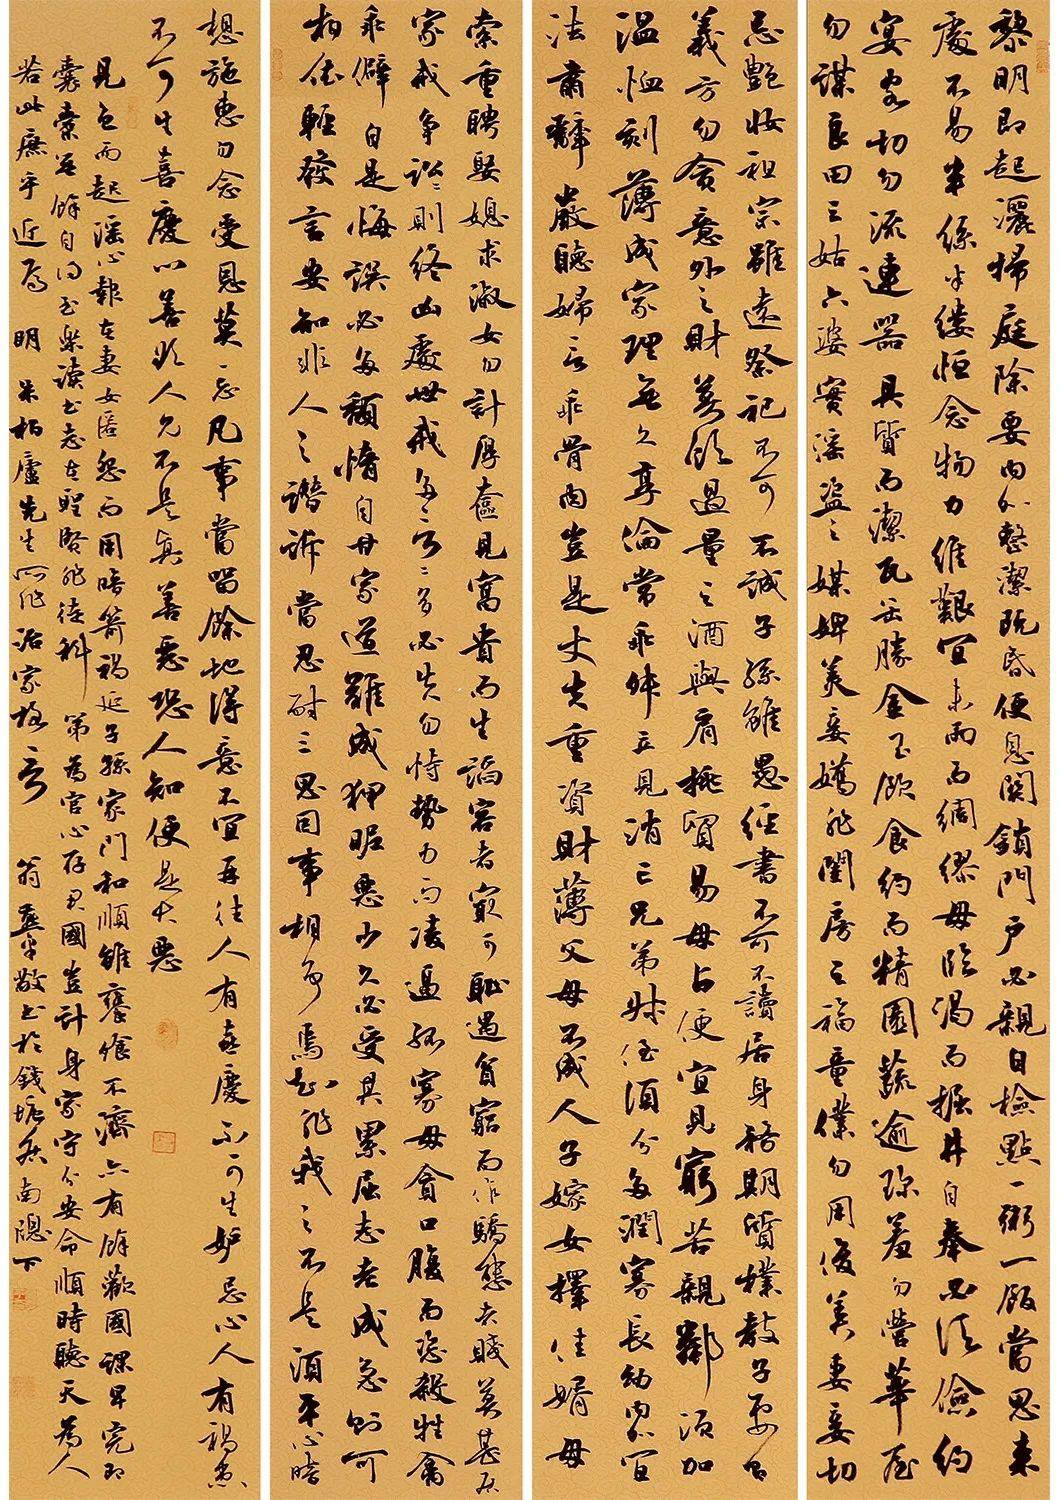 黎明即起灑掃庭除要內外整潔既昏便息關鎖門戶必親自檢點一粥一飯當思來
處不易半絲半縷恒念物力維艱宜未雨而綢繆毋臨渴而掘井自奉必須儉約
宴客切勿流連器具質而潔瓦缶勝金玉飲食約而精園蔬逾珍羞勿營華屋
勿謀良田三姑六婆實淫盜之媒婢美妾嬌非閨房之福童僕勿用俊美妻妾切
忌艷妝祖宗雖遠祭祀不可不誠子孫雖愚經書不可不讀居身務期質樸教子要有
義方勿貪意外之財莫飲過量之酒與肩挑貿易毋占便宜見窮苦親鄰須加
溫恤刻薄成家理無久享倫常乖舛立見消亡兄弟叔侄須分多潤寡長幼內外宜
法肅辭嚴聽婦言乖骨肉豈是丈夫重資財薄父母不成人子嫁女擇佳婿毋
索重聘娶媳求淑女勿計厚奩見富貴而生諂容者最可恥遇貧窮而作驕態者賤莫甚居
家戒爭訟訟則終凶處世戒多言言多必失勿恃勢力而凌逼孤寡毋貪口腹而恣殺牲禽
乖僻自是悔誤必多頹惰自甘家道難成狎昵惡少久必受其累屈志老成急則可
相依輕發言安知非人之譖訴當忍耐三思因事相爭焉知非我之不是須平心暗
想施惠勿念受恩莫忘凡事當留餘地得意不宜再往人有喜慶不可生妒忌心人有禍患
不可生喜慶心善欲人見不是真善惡恐人知便是大惡
見色而起淫心報在妻女匿怨而用暗箭禍延子孫家門和順雖饔飧不濟亦有餘歡國課早完即
囊橐無餘自得至樂讀書志在聖賢非徒科第為官心存君國豈計身家守分安命順時聽天為人
若此庶乎近焉 明 朱柏廬先生 治家格言 翁 敬書於錢塘 南隱下